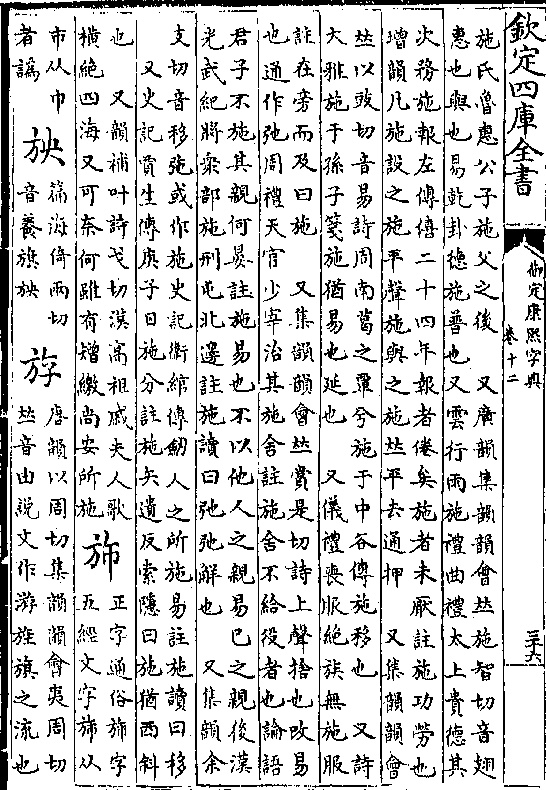 欽定四庫全書
御定康熙字典
卷十二
三十六
施氏魯惠公子施父之後　又廣韻集韻韻會𠀤施智切音翅
惠也與也易乾卦德施普也又雲行雨施禮曲禮太上貴德其
次務施報左傳僖二十四年報者倦矣施者未厭註施功勞也
增韻凡施設之施平聲施與之施𠀤平去通押　又集韻韻會
𠀤以豉切音易詩周南葛之覃兮施于中谷傳施移也　又詩
大雅施于孫子箋施猶易也延也　又儀禮喪服絕族無施服
註在旁而及曰施　又集韻韻會𠀤賞是切詩上聲捨也改易
也通作弛周禮天官少宰治其施舍註施舍不給役者也論語
君子不施其親何晏註施易也不以他人之親易己之親後漢
光武紀將衆部施刑屯北邊註施讀曰弛弛解也　又集韻余
支切音移㢮或作施史記衛綰傳劒人之所施易註施讀曰移
又史記賈生傳庚子日施分註施矢遺反索隱曰施猶西斜
也　又韻補叶詩戈切漢高祖戚夫人歌
橫絕四海又可奈何雖有矰繳尚安所施
斾
正字通俗斾字
五經文字斾从
巿从巾
者譌
䄃
篇海倚兩切
音養旗䄃
斿
唐韻以周切集韻韻會夷周切
𠀤音由說文作游旌旗之流也